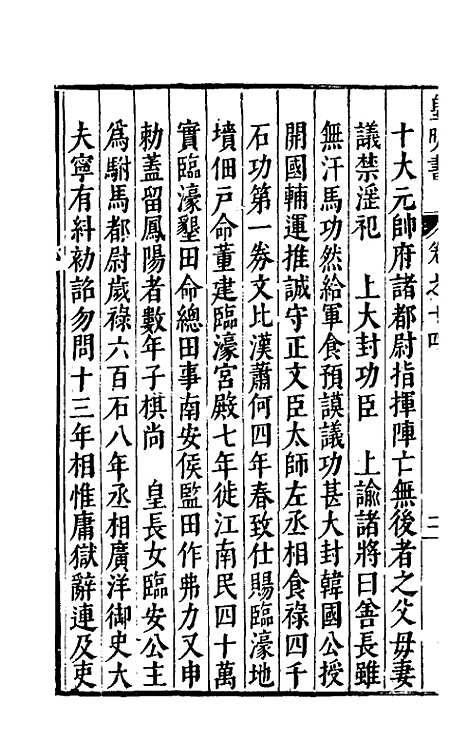 皇明書　卷之十四　二
十大元帥府諸都尉指揮陣亡無後者之父母妻
議禁淫祀　上大封功臣　上諭諸將曰善長雖
無汗馬功然給軍食預謨議功甚大封韓國公授
開國輔運推誠守正文臣太師左丞相食祿四千
石功第一券文比漢蕭何四年春致仕賜臨濠地
墳佃戶命董建臨濠宮殿七年徙江南民四十萬
實臨濠墾田命總田事南安侯監田作弗力又申
勅蓋留鳳陽者數年子棋尚　皇長女臨安公主
為駙馬都尉歲祿六百石八年丞相廣洋御史大
夫寧有糾劾詔勿問十三年相惟庸獄辭連及吏